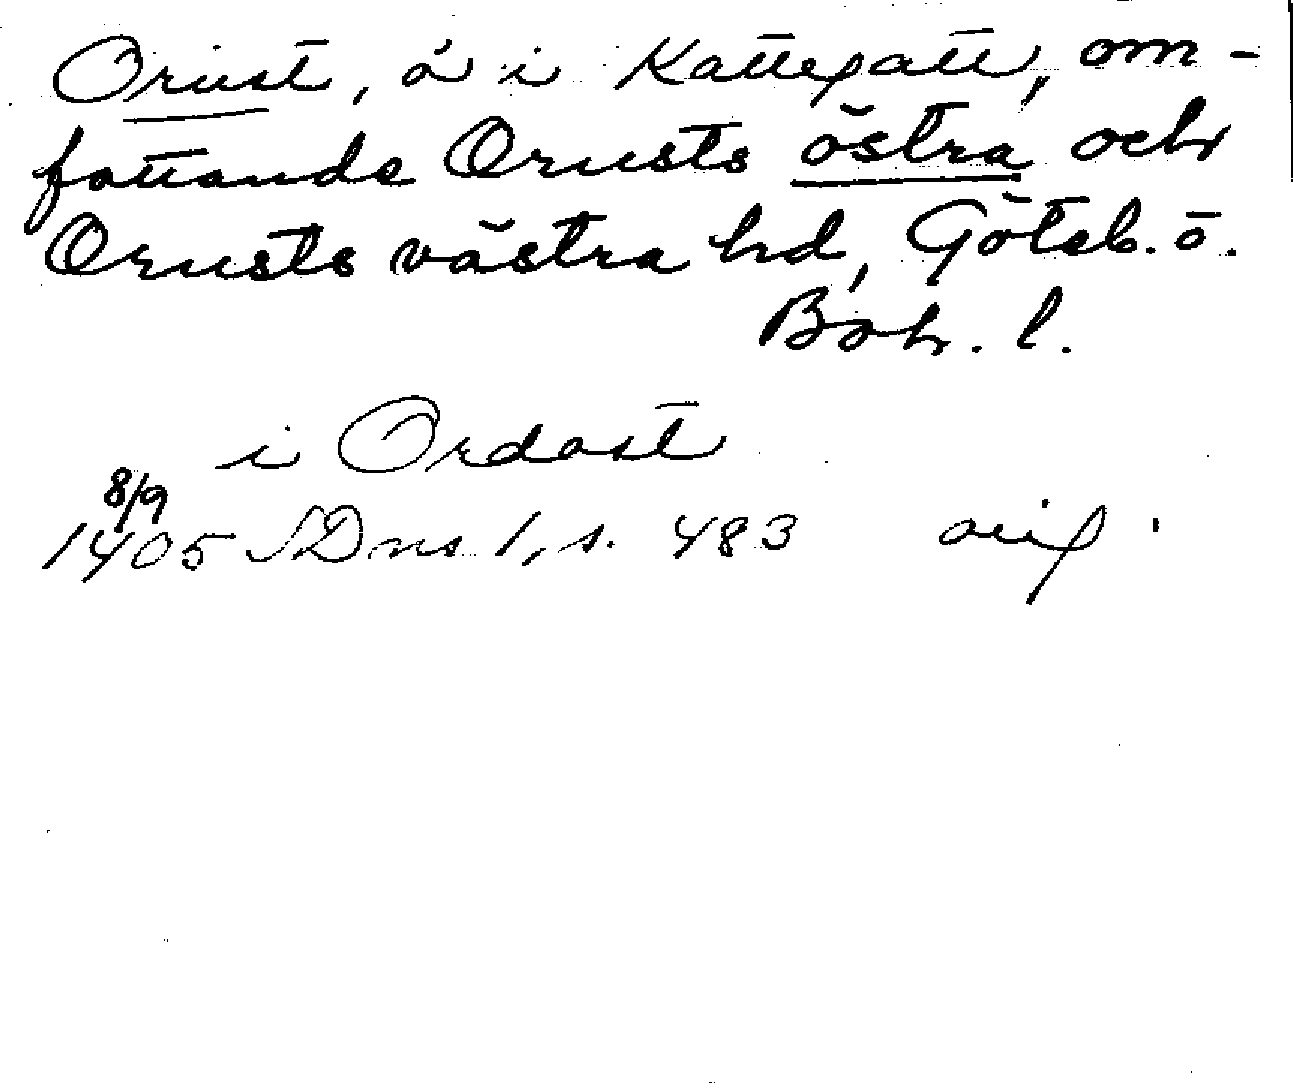 Orust, ö i Kattegatt, om-
fattande Orusts östra och
Orusts västra hd, Göteb. o.
Boh. l.
i Ordost
8/9
1405 SDns 1, s. 483 orig.